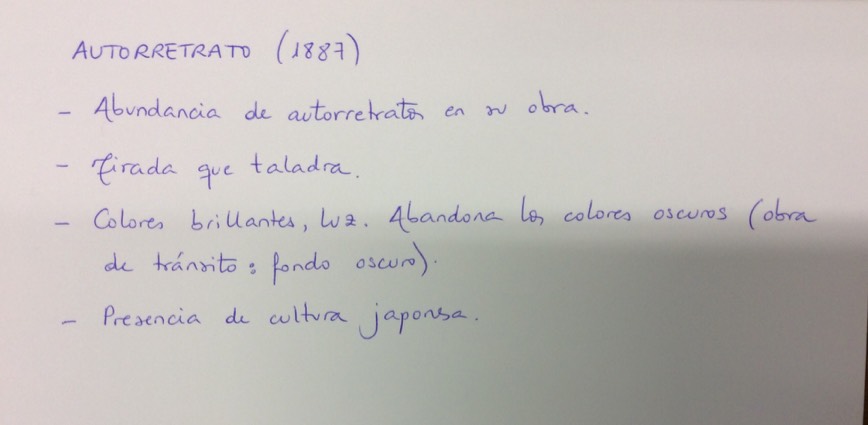 AUTORRETRATO (1887)
- Abundancia de autorretratos en su obra.
- Mirada que taladra.
- Colores brillantes, luz. Abandona los colores oscuros (obra
de tránsito: fondo oscuro).
- Presencia de cultura japonsa.